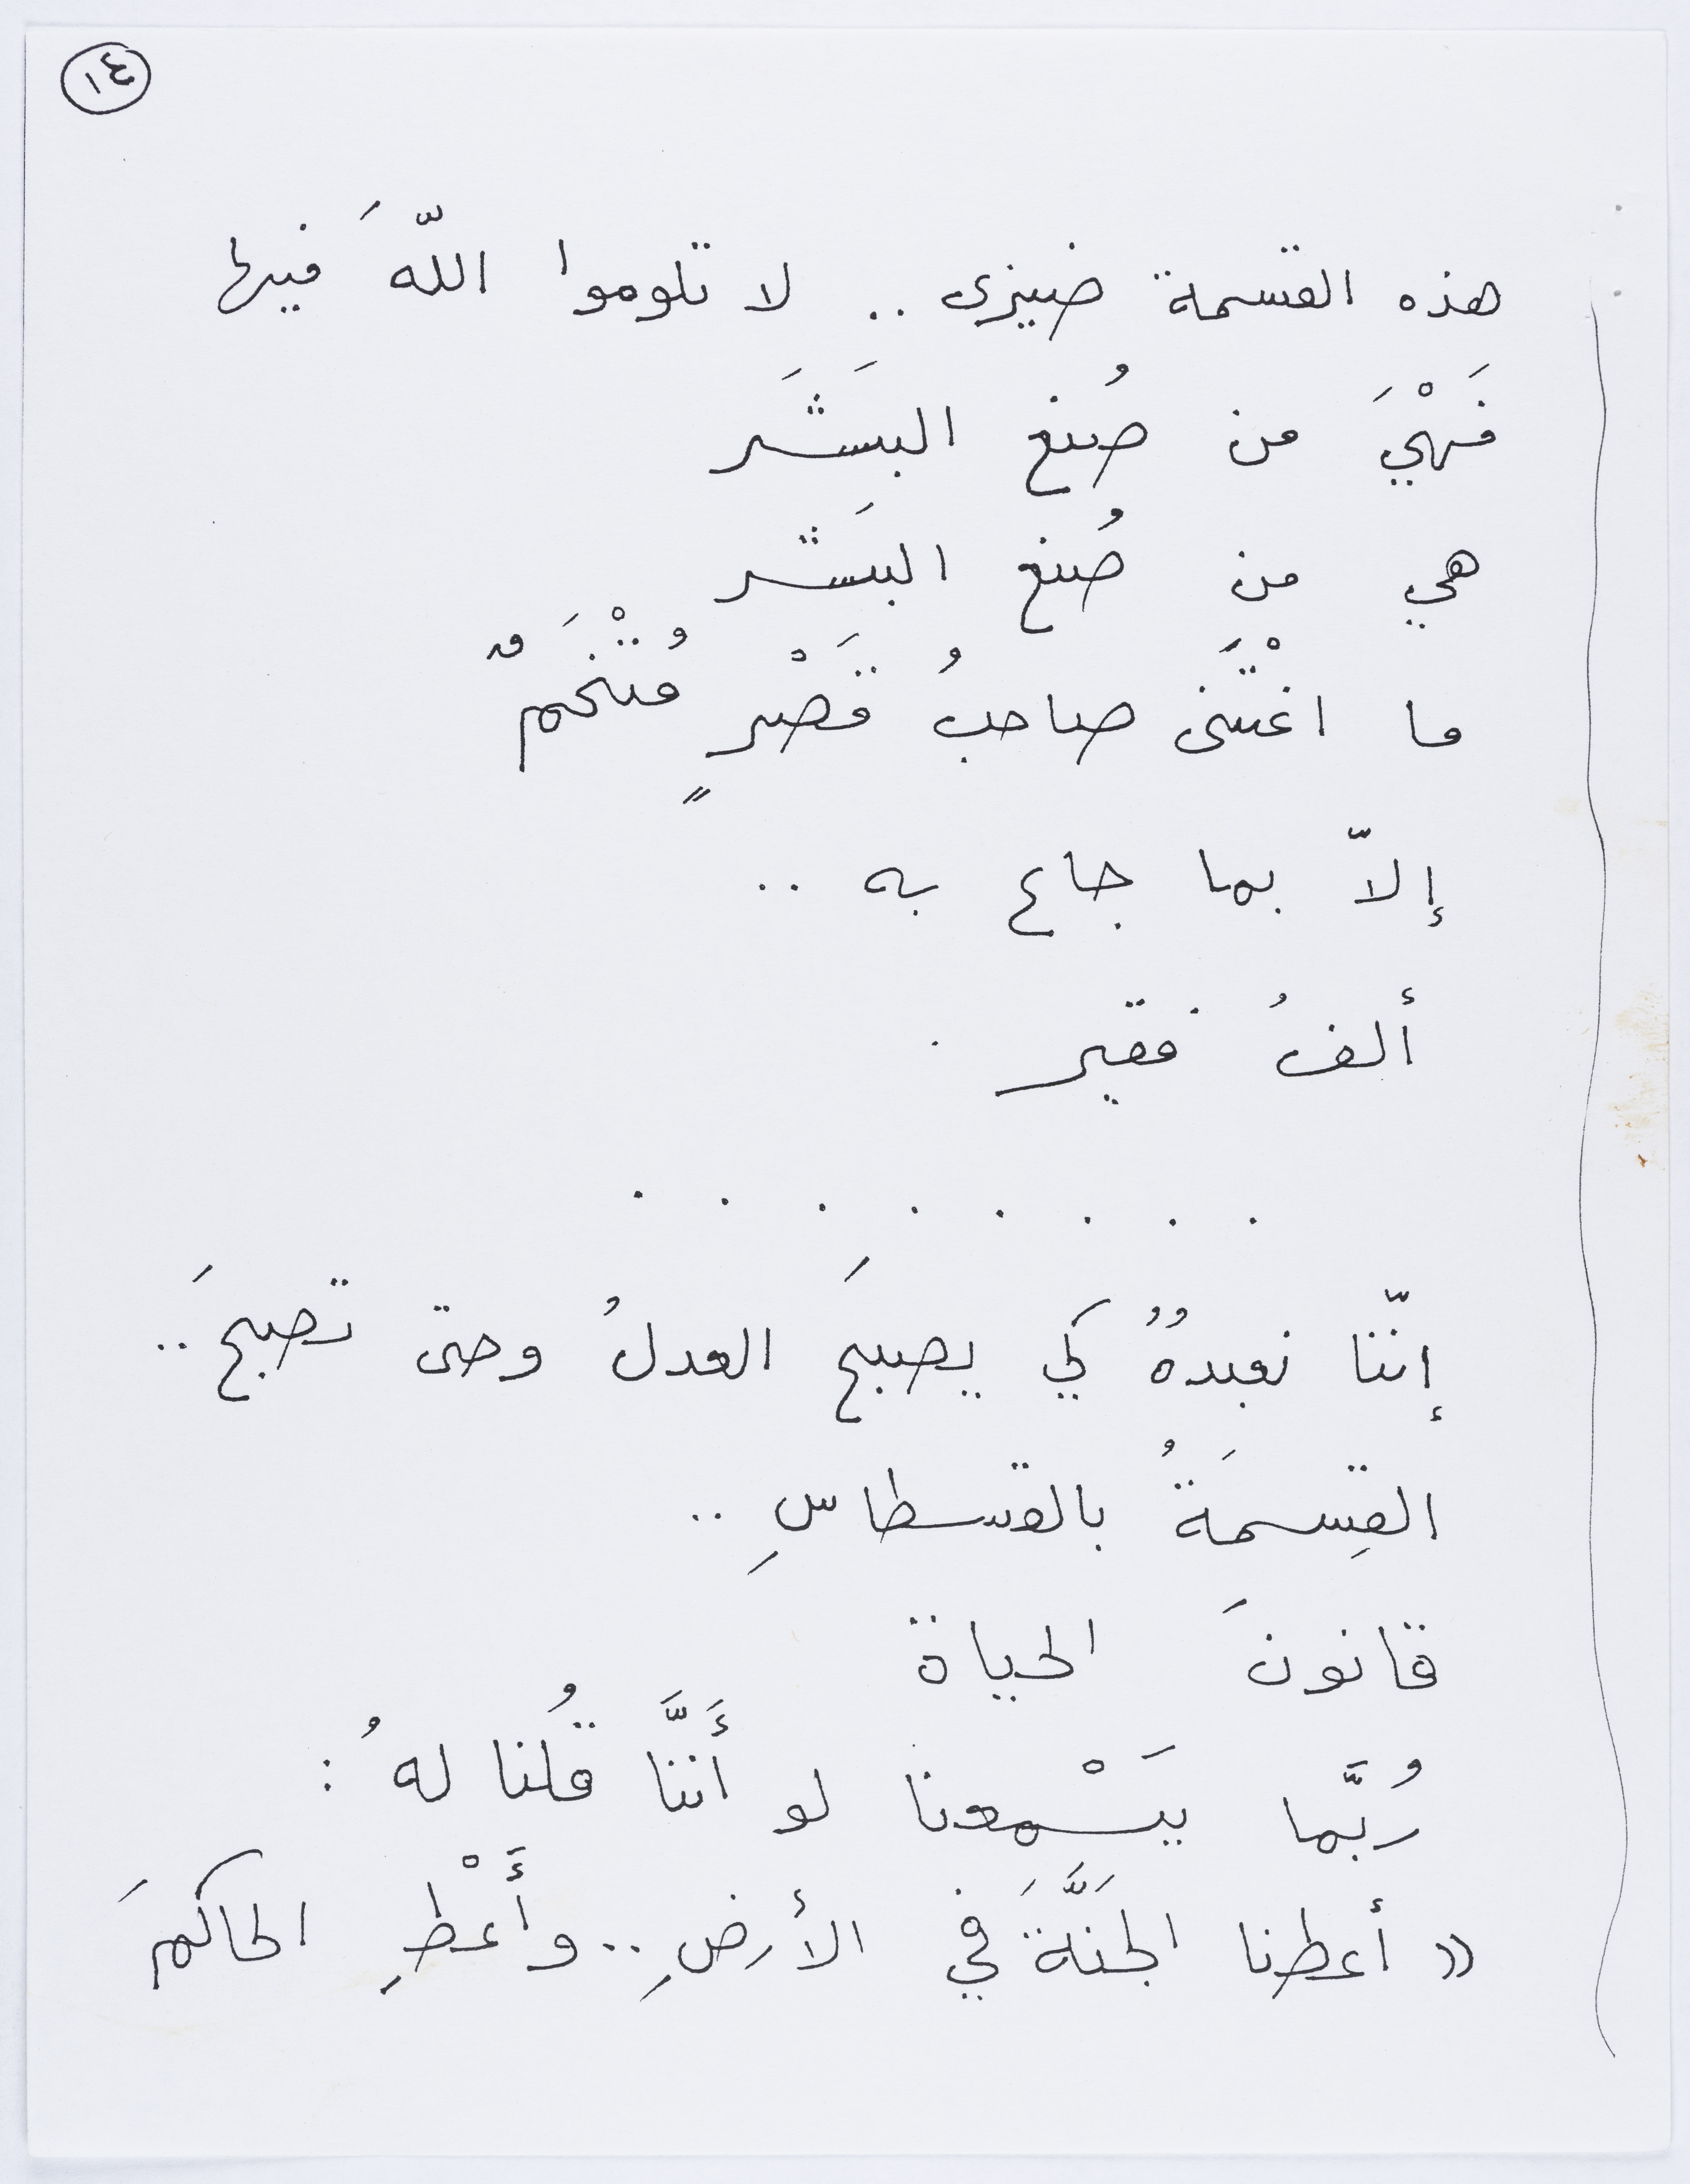 ١٤
هذه القسمة ضيزى .. لا تلوموا اللّهَ فيها
فَهْيَ من صُنع البَشَر
هي من صُنع البَشر
ما اغْتَنى صاحبُ قَصْرٍ مُتْخَمٌ
إلاّ بما جاع به ..
ألفُ فقير .
. . . . . . . .
إنّنا نعبدُهُ كي يصبحَ العدلُ وحتى تصبحَ ..
القِسمَةُ بالقسطاسِ ..
قانونَ الحياة
رُبَّما يَسْمعنا لو أَننَّا قُلنا لهُ :
« أعطنا الجَنَّةَ في الأرضِ .. وأَعْطِ الحاكمَ